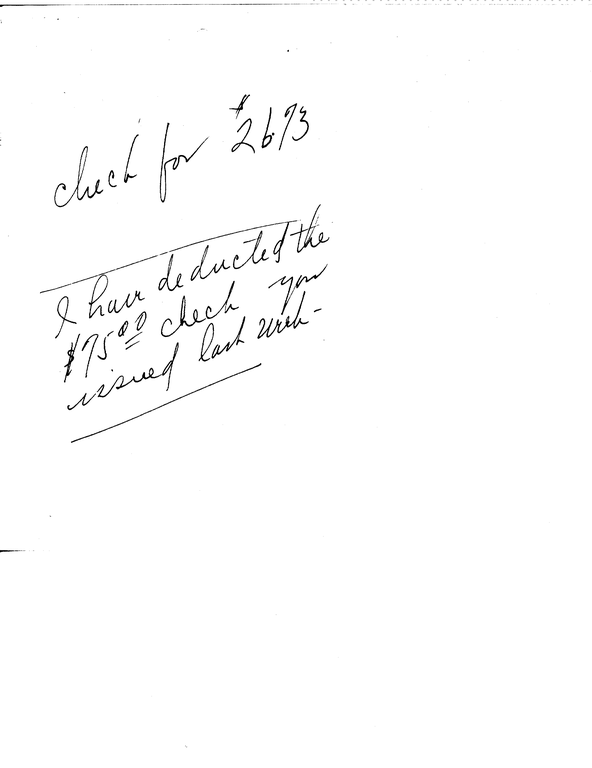 check for $26.93
I have deducted the
$75.00 check you
issued last week-